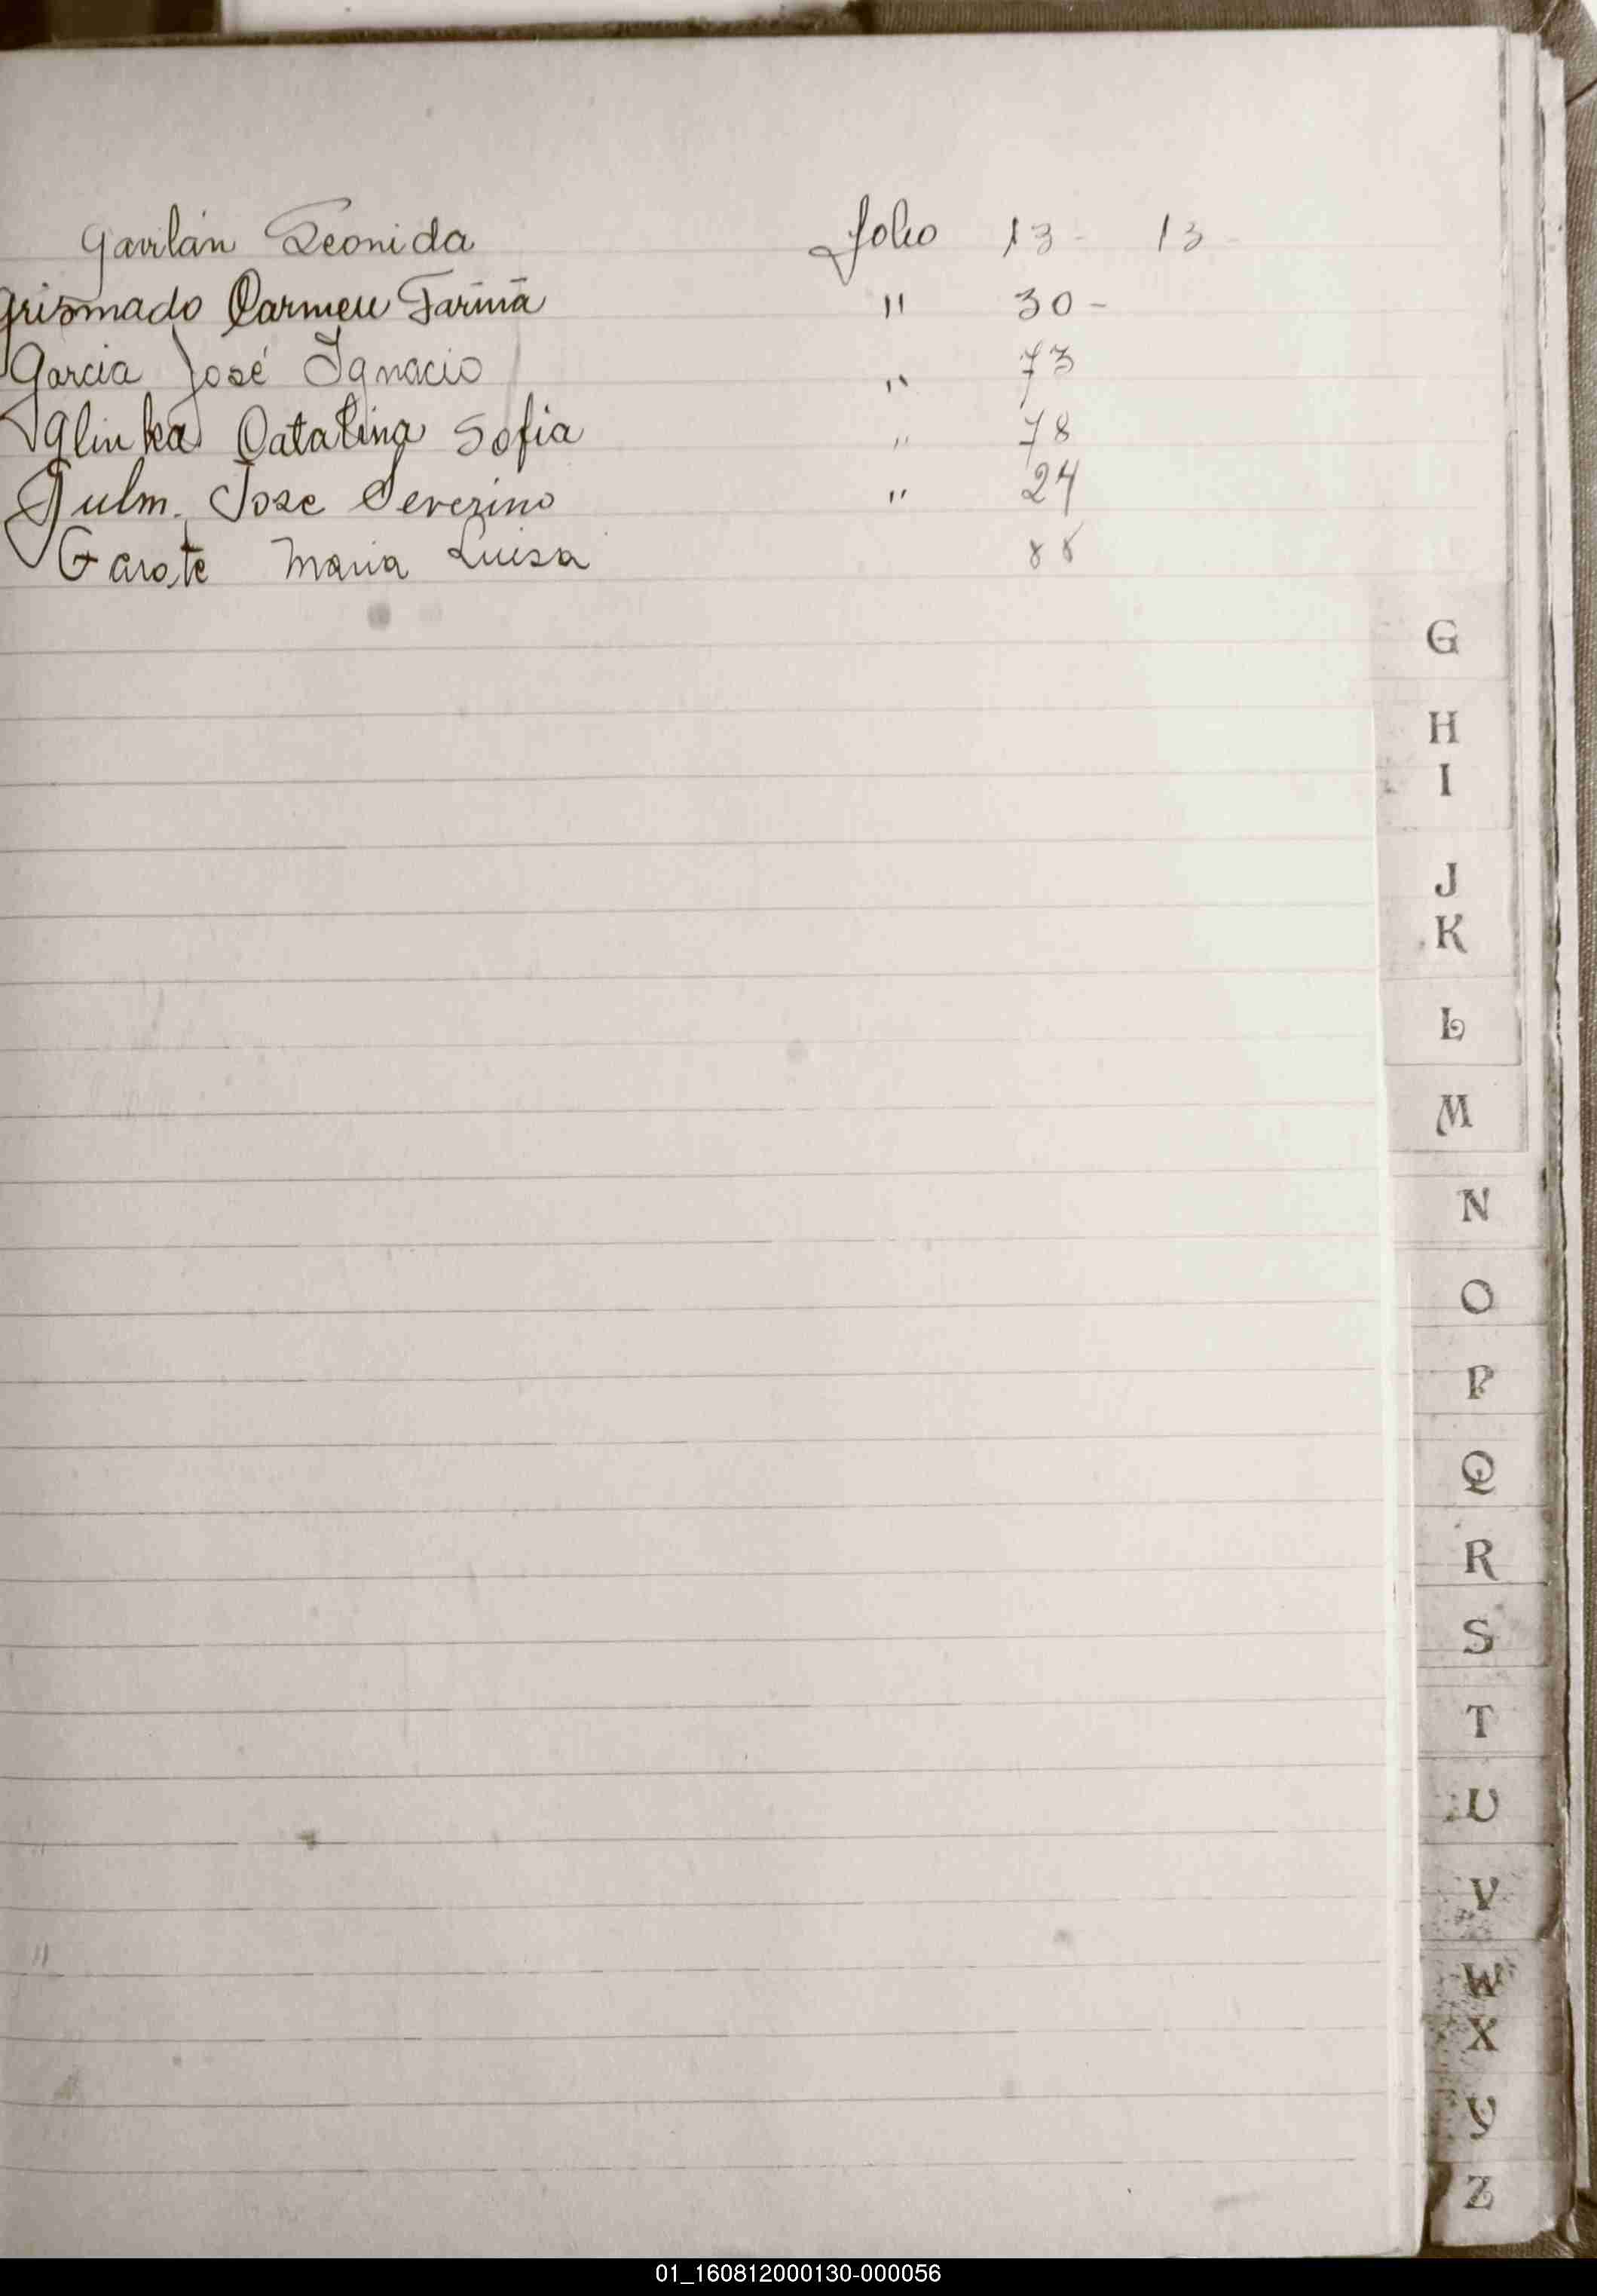 Gavilán Leonida folio 13 - 13 -
Grismado Carmen Fariña " 30 -
Garcia José Ignacio " 73
Glinka Catalina Sofia " 78
Gulm. Jose Severino " 24
Garate Maria Luisa 88
G
H
I
J
K
L
M
N
O
P
Q
R
S
T
U
V
W
X
Y
Z
01_160812000130-000056